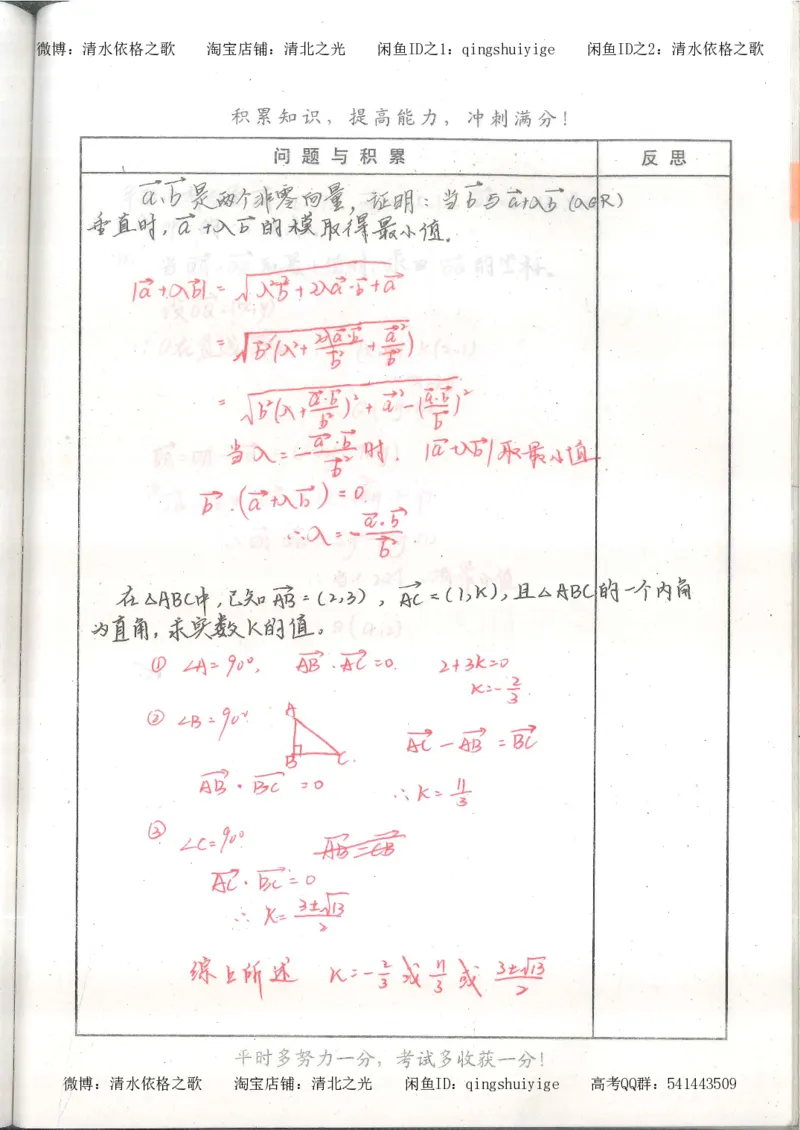 微博：清水依格之歌 淘宝店铺：清北之光 闲鱼ID之1：qingshuiyige 闲鱼ID之2：清水依格之歌
积累知识，提高能力，冲刺满分！
问题与积累 反思
a⃗、b⃗是两个非零向量，证明：当b⃗与a⃗+λb⃗(λ∈R)
垂直时，a⃗+λb⃗的模取得最小值．
|a⃗+λb⃗| = √(λ²b⃗²+2λa⃗·b⃗+a⃗²)
= √(b⃗²(λ²+2λa⃗·b⃗/b⃗²+a⃗²/b⃗²))
= √(b⃗²(λ+a⃗·b⃗/b⃗²)²+a⃗²-(a⃗·b⃗/b⃗)²)
当λ=-a⃗·b⃗/b⃗²时．|a⃗+λb⃗|取最小值
b⃗·(a⃗+λb⃗)=0
∴λ=-a⃗·b⃗/b⃗²
在△ABC中，已知AB⃗=(2,3)，AC⃗=(1,K)，且△ABC的一个内角
为直角，求实数K的值。
① ∠A=90°, AB⃗·AC⃗=0. 2+3k=0
K=-2/3.
② ∠B=90° A
AC⃗-AB⃗=BC⃗
B C
AB⃗·BC⃗=0 ∴K=11/3
③ ∠C=90° AB⃗=CB⃗
AC⃗·BC⃗=0
∴K=(3±√13)/2
综上所述 K=-2/3或11/3或(3±√13)/2
平时多努力一分，考试多收获一分！
微博：清水依格之歌 淘宝店铺：清北之光 闲鱼ID：qingshuiyige 高考QQ群：541443509